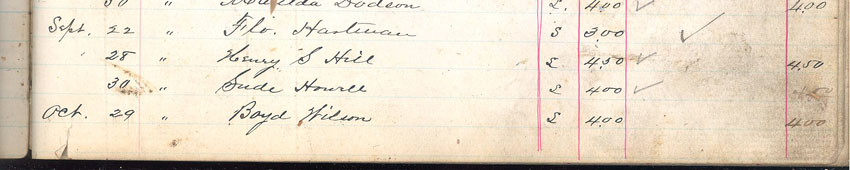 30 " Matilda Dodson £ 400 ✓ 400
Sept. 22 " Flo. Hartman S 300 ✓
" 28 " Henry S Hill £ 450 ✓ 450
30 " Sude Howell £ 400 ✓ 400
Oct. 29 " Boyd Wilson £ 400 400